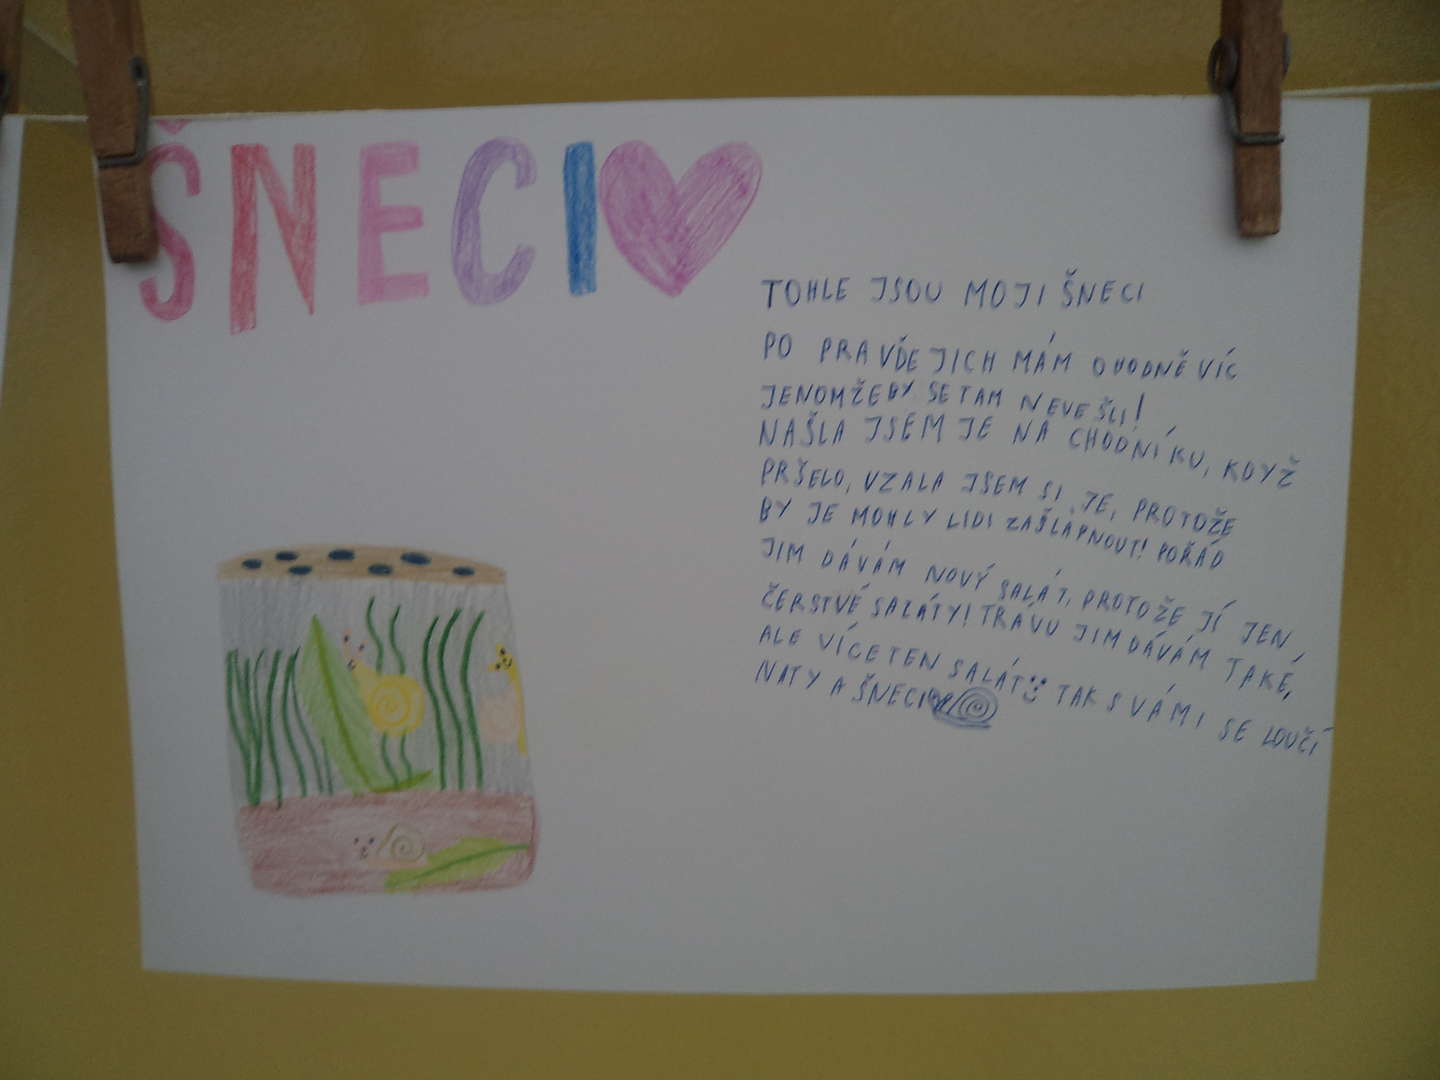 ŠNECI
TOHLE JSOU MOJI ŠNECI
PO PRAVDĚ JICH MÁM O HODNĚ VÍC
JENOMŽEBY SE TAM NEVEŠLI!
NAŠLA JSEM JE NA CHODNÍKU, KDYŽ
PRŠELO, VZALA JSEM SI JE, PROTOŽE
BY JE MOHLY LIDI ZAŠLÁPNOUT! POŘÁD
JIM DÁVÁM NOVÝ SALÁT, PROTOŽE JÍ JEN
ČERSTVÉ SALÁTY! TRÁVU JIM DÁVÁM TAKÉ,
ALE VÍCE TEN SALÁT TAK S VÁMI SE LOUČÍ
NATY A ŠNECI